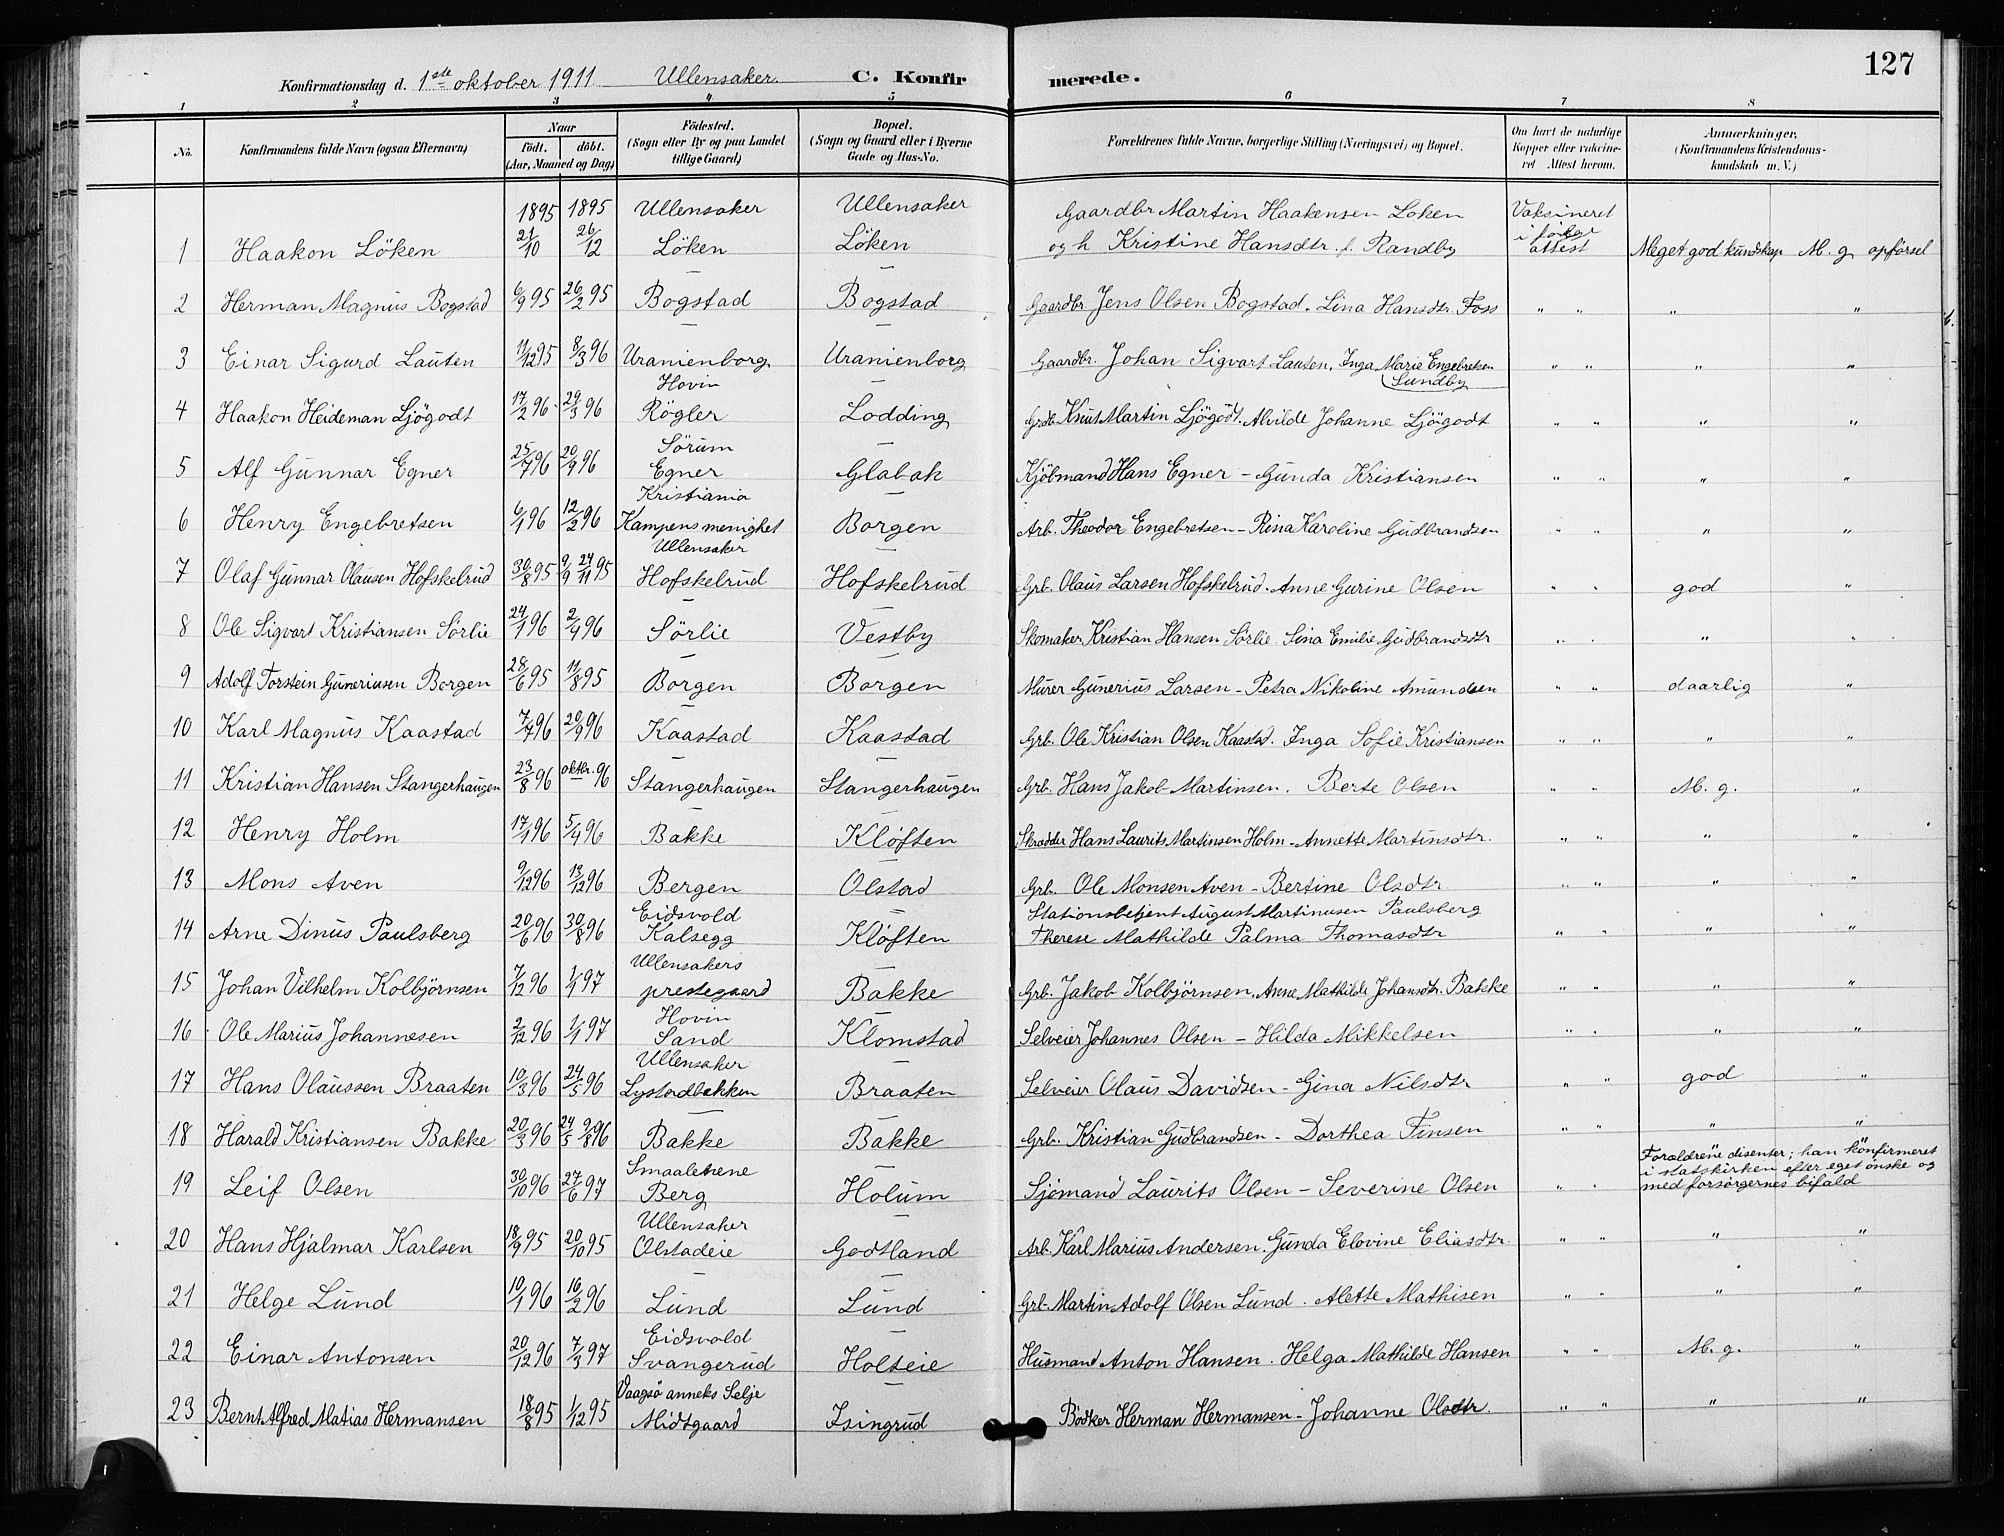 127
Konfirmationsdag d. 1ste oktober 1911. Ullensaker. C. Konfirmerede.
1 2 3 4 5 6 7 8
No. Konfirmandens fulde Navn (ogsaa Efternavn) Naar født. døbt. (Aar, Maaned og Dag) Fødested. (Sogn eller By og paa Landet tillige Gaard) Bopæl. (Sogn og Gaard eller i Byerne Gade og Hus-No. Forældrenes fulde Navne, borgerlige Stilling (Næringsvei) og Bopæl. Om havt de naturlige Kopper eller vakcineret Attest herom. Anmærkninger, (Konfirmandens Kristendomskundskab m. V.)
1895 1895 Ullensaker Ullensaker Gaardbr Martin Haakensen Løken Vaksineret
1 Haakon Löken 21/10 26/12 Löken Löken og h Kristine Hansdtr. f. Randby attest Meget god kundskap M. g opförsel
2 Herman Magnus Bogstad 6/9 95 26/2 95 — Bogstad — Bogstad Gaardbr. Jens Olsen Bogstad. Lina Hansdtr. Foss " " " "
3 Einar Sigurd Lauten 11/12 95 8/3 96 — Uranienborg — Uranienborg Gaardbr. Johan Sigvart Lauten. Inga Marie Engebretsen Sundby " " " "
4 Haakon Heideman Ljögodt 17/2 96 29/3 96 Hovin Røgler — Lodding Grdb. Knut Martin Ljögodt. Alvilde Johanne Ljögodt " " " "
5 Alf Gunnar Egner 25/7 96 20/9 96 Sørum Egner — Glabak Kjöbmand Hans Egner - Gunda Kristiansen " " " "
6 Henry Engebretsen 6/1 96 12/2 96 Kristiania Kampens menighet — Borgen Arb. Theodor Engebretsen - Rina Karoline Gudbrandsen " " " "
7 Olaf Gunnar Olausen Hofskelrud 30/8 95 9/9 24/11 95 Ullensaker Hofskelrud Hofskelrud Grb. Olaus Larsen Hofskelrud. Anne Gurine Olsen " " god "
8 Ole Sigvart Kristiansen Sörlie 24/1 96 2/4 96 Sörlie Vestby Skomaker Kristian Hansen Sörlie. Lina Emilie Gudbrandsdtr " " " "
9 Adolf Torstein Guneriusen Borgen 28/6 95 11/8 95 — Borgen — Borgen Murer Gunerius Larsen - Petra Nikoline Amundsen " " daarlig "
10 Karl Magnus Kaastad 7/7 96 20/9 96 — Kaastad Kaastad Grb. Ole Kristian Olsen Kaastad. Inga Sofie Kristiansen " " " "
11 Kristian Hansen Stangerhaugen 23/8 96 oktbr. 96 — Stangerhaugen — Stangerhaugen Grb. Hans Jakob Martinsen. Berte Olsen " " M. g. "
12 Henry Holm 17/1 96 5/4 96 — Bakke — Kløften Skrædder Hans Laurits Martinsen Holm - Annette Martinsdtr. " " " "
13 Mons Aven 9/12 96 13/12 96 Bergen Olstad Grb. Ole Monsen Aven - Bertine Olsdtr. " " " "
14 Arne Dinus Paulsberg 20/6 96 30/8 96 Eidsvold Kalsegg — Kløften Stationsbetjent August Martinusen Paulsberg Therese Mathilde Palma Thomasdtr " " " "
15 Johan Vilhelm Kolbjörnsen 7/12 96 1/1 97 Ullensakers prestegaard — Bakke Grb. Jakob Kolbjørnsen. Anne Mathilde Johansdtr. Bakke " " " "
16 Ole Marius Johannesen 2/12 96 1/1 97 Hovin Sand — Klomstad Selveier Johannes Olsen - Hilda Mikkelsen " " " "
17 Hans Olaussen Braaten 10/3 96 24/5 96 Ullensaker Lystadbakken — Braaten Selveier Olaus Davidsen - Gina Nilsdtr " " god "
18 Harald Kristiansen Bakke 20/3 96 24/5 9/8 96 — Bakke — Bakke Grb. Kristian Gudbrandsen - Dorthea Finsen " " " "
19 Leif Olsen 30/10 96 27/6 97 Smaalenene Berg — Holum Sjömand Laurits Olsen - Severine Olsen " " Forældrene disenter; han konfirmeret i statskirken efter eget ønske og med forsørgernes bifald
20 Hans Hjalmar Karlsen 18/9 95 20/10 95 Ullensaker Olstadeie — Godtland Arb. Karl Marius Andersen. Gunda Elovine Eliasdtr. " " " "
21 Helge Lund 10/1 96 16/2 96 — Lund — Lund Grb. Martin Adolf Olsen Lund. Alette Mathisen " " " "
22 Einar Antonsen 20/12 96 7/3 97 Eidsvold Svangerud — Holteie Husmand Anton Hansen. Helga Mathilde Hansen " " M. g. "
23 Bernt Alfred Matias Hermansen 18/8 95 1/12 95 Vaagsö anneks Selje Midtgaard — Isingrud Bödker Herman Hermansen - Johanne Olsdtr. " " " "